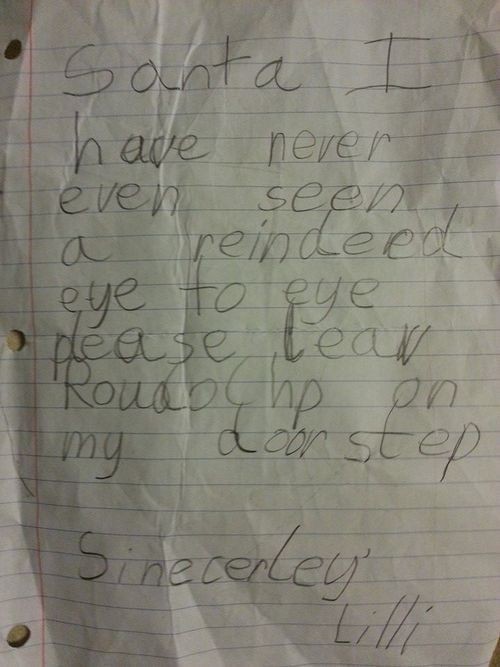 Santa I
have never
even seen
a reindeed
eye to eye
please leav
Roudolchp on
my doorstep
Sinecerley
Lilli